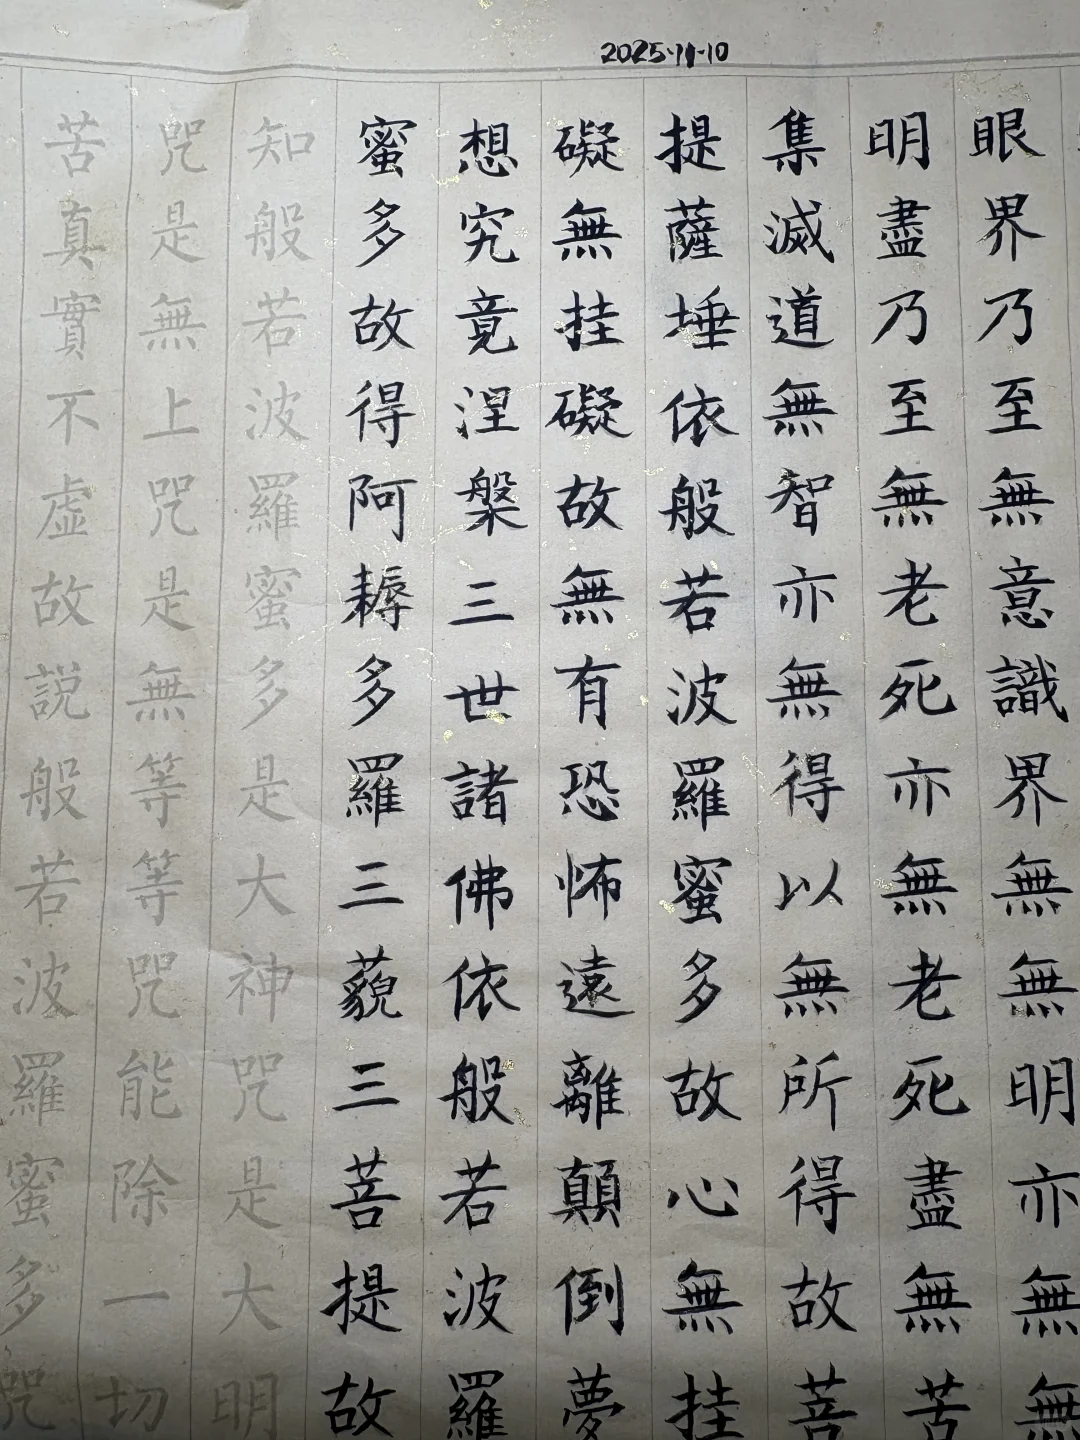 2025·11·10
眼界乃至無意識界無無明亦無無
明盡乃至無老死亦無老死盡無苦
集滅道無智亦無得以無所得故菩
提薩埵依般若波羅蜜多故心無挂
礙無挂礙故無有恐怖遠離顛倒夢
想究竟涅槃三世諸佛依般若波羅
蜜多故得阿耨多羅三藐三菩提故
知般若波羅蜜多是大神咒是大明
咒是無上咒是無等等咒能除一切
苦真實不虛故説般若波羅蜜多咒